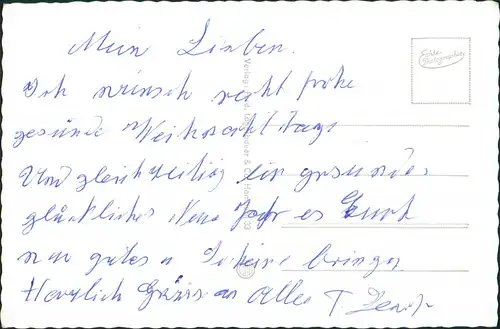 Mein Lieben.
Ich wünsch recht frohe
gesunde Weihnachtstage
Und gleichzeitig ein gesundes
glückliches Neue Jahr es
nur gutes bringen
Herzlich Grüss an Alle T
Echte Photographie
Verlag